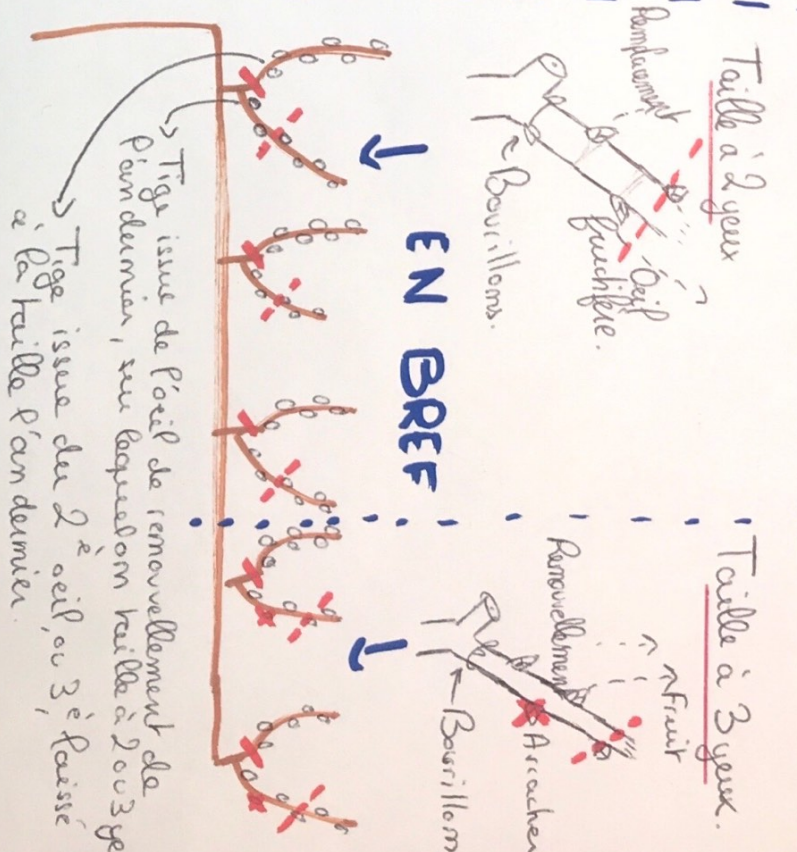 Taille à 2 yeux
Remplacement
Oeil
fructifère.
Bourillons.
Taille à 3 yeux.
Fruit
Renouvellement
Arracher
Bourillons
EN BREF
Tige issue de l'oeil de renouvellement de
l'an dernier, sur laquelle on taille à 2 ou 3 ye
Tige issue du 2è oeil, ou 3è, laissé
à la taille l'an dernier.